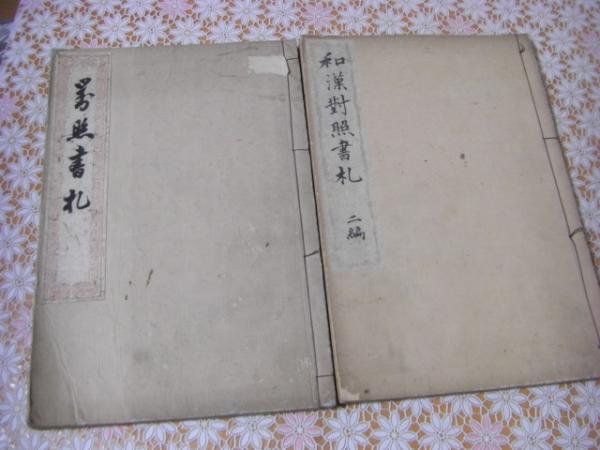 和漢對照書札
二編
照書札